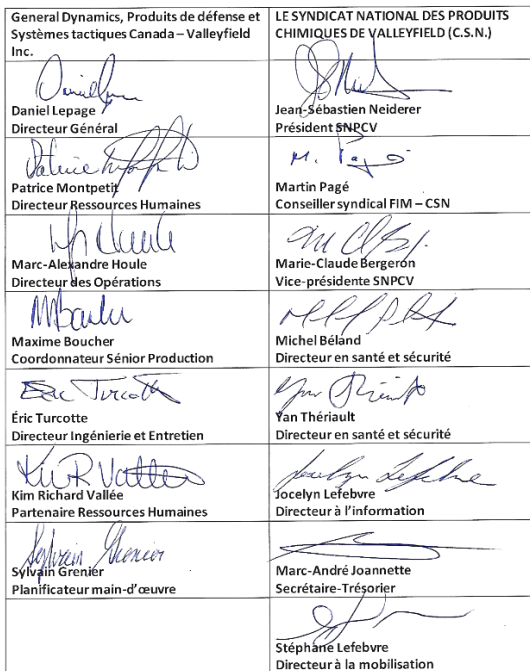 General Dynamics, Produits de défense et
Systèmes tactiques Canada – Valleyfield
Inc.
LE SYNDICAT NATIONAL DES PRODUITS
CHIMIQUES DE VALLEYFIELD (C.S.N.)
Daniel Lepage
Directeur Général
Jean-Sébastien Neiderer
Président SNPCV
Patrice Montpetit
Directeur Ressources Humaines
M. Pagé
Martin Pagé
Conseiller syndical FIM – CSN
Marc-Alexandre Houle
Directeur des Opérations
Marie-Claude Bergeron
Vice-présidente SNPCV
Maxime Boucher
Coordonnateur Sénior Production
Michel Béland
Directeur en santé et sécurité
Eric Turcotte
Éric Turcotte
Directeur Ingénierie et Entretien
Yan Thériault
Directeur en santé et sécurité
Kim Richard Vallée
Partenaire Ressources Humaines
Jocelyn Lefebvre
Jocelyn Lefebvre
Directeur à l'information
Sylvain Grenier
Sylvain Grenier
Planificateur main-d'œuvre
Marc-André Joannette
Secrétaire-Trésorier
Stéphane Lefebvre
Directeur à la mobilisation